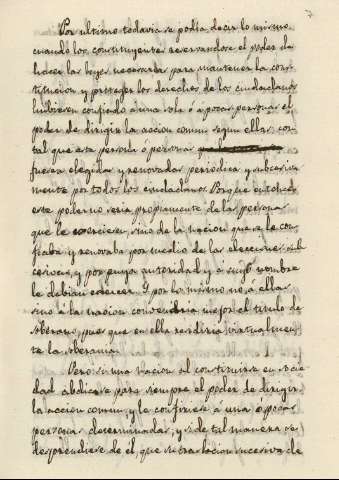 Por ultimo todavia se podia decir lo mismo,
cuando los constituyentes reservandose el poder de
hacer las leyes necesarias para mantener la cons-
titucion y proteger los derechos de los ciudadanos
hubiesen confiado á una sola ó á pocas personas el
poder de dirigir la accion comun segun ellas, con
tal que esta persona ó personas
fuesen elegidas y renovadas periodica y subcesiva
mente por todos los ciudadanos. Porque entonces
este poder no seria propiamente de las personas
que le exerciesen, sino de la nacion que se le con-
fiaba y renovaba por medio de las elecciones sub
cesivas, y por cuya autoridad y á cuyo nombre
le debian exercer. Y por lo mismo no á ellas
sino á la nacion convendria mejor el titulo de
soberano, pues que en ella residiria virtualmen-
te la soberania.
Pero si una nacion al constituirse en socie
dad abdicase para siempre el poder de dirigir
la accion comun, y le confiriese á una ó pocas
personas determinadas, y si de tal manera se
desprendiese de él, que su traslacion sucesiva de